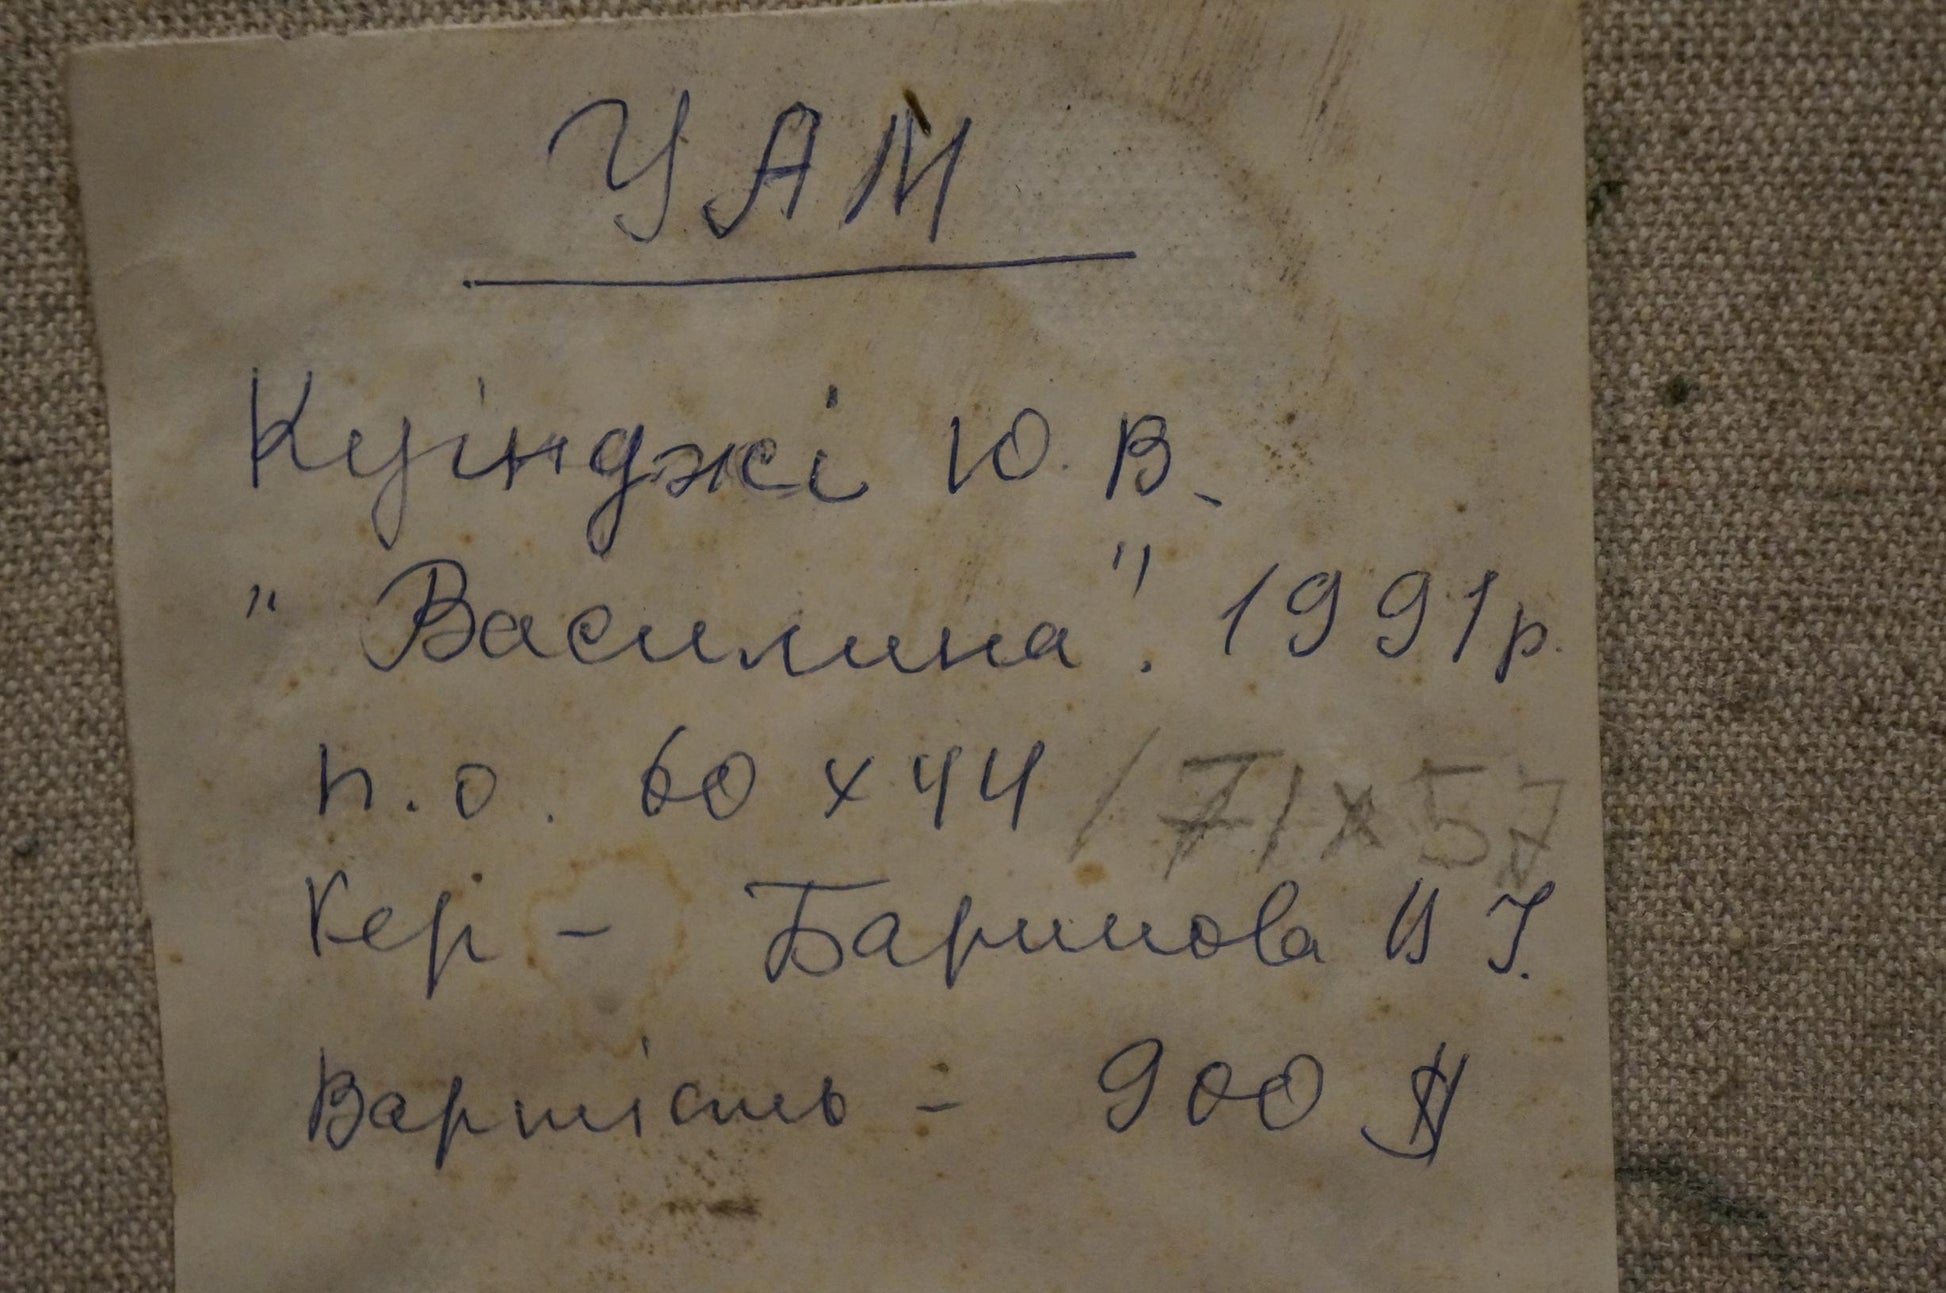 УАМ
Куінджі Ю. В.
"Василина". 1991р.
п.о. 60 х 44 / 71 х 57
Кер - Баринова І.
Вартість - 900 $